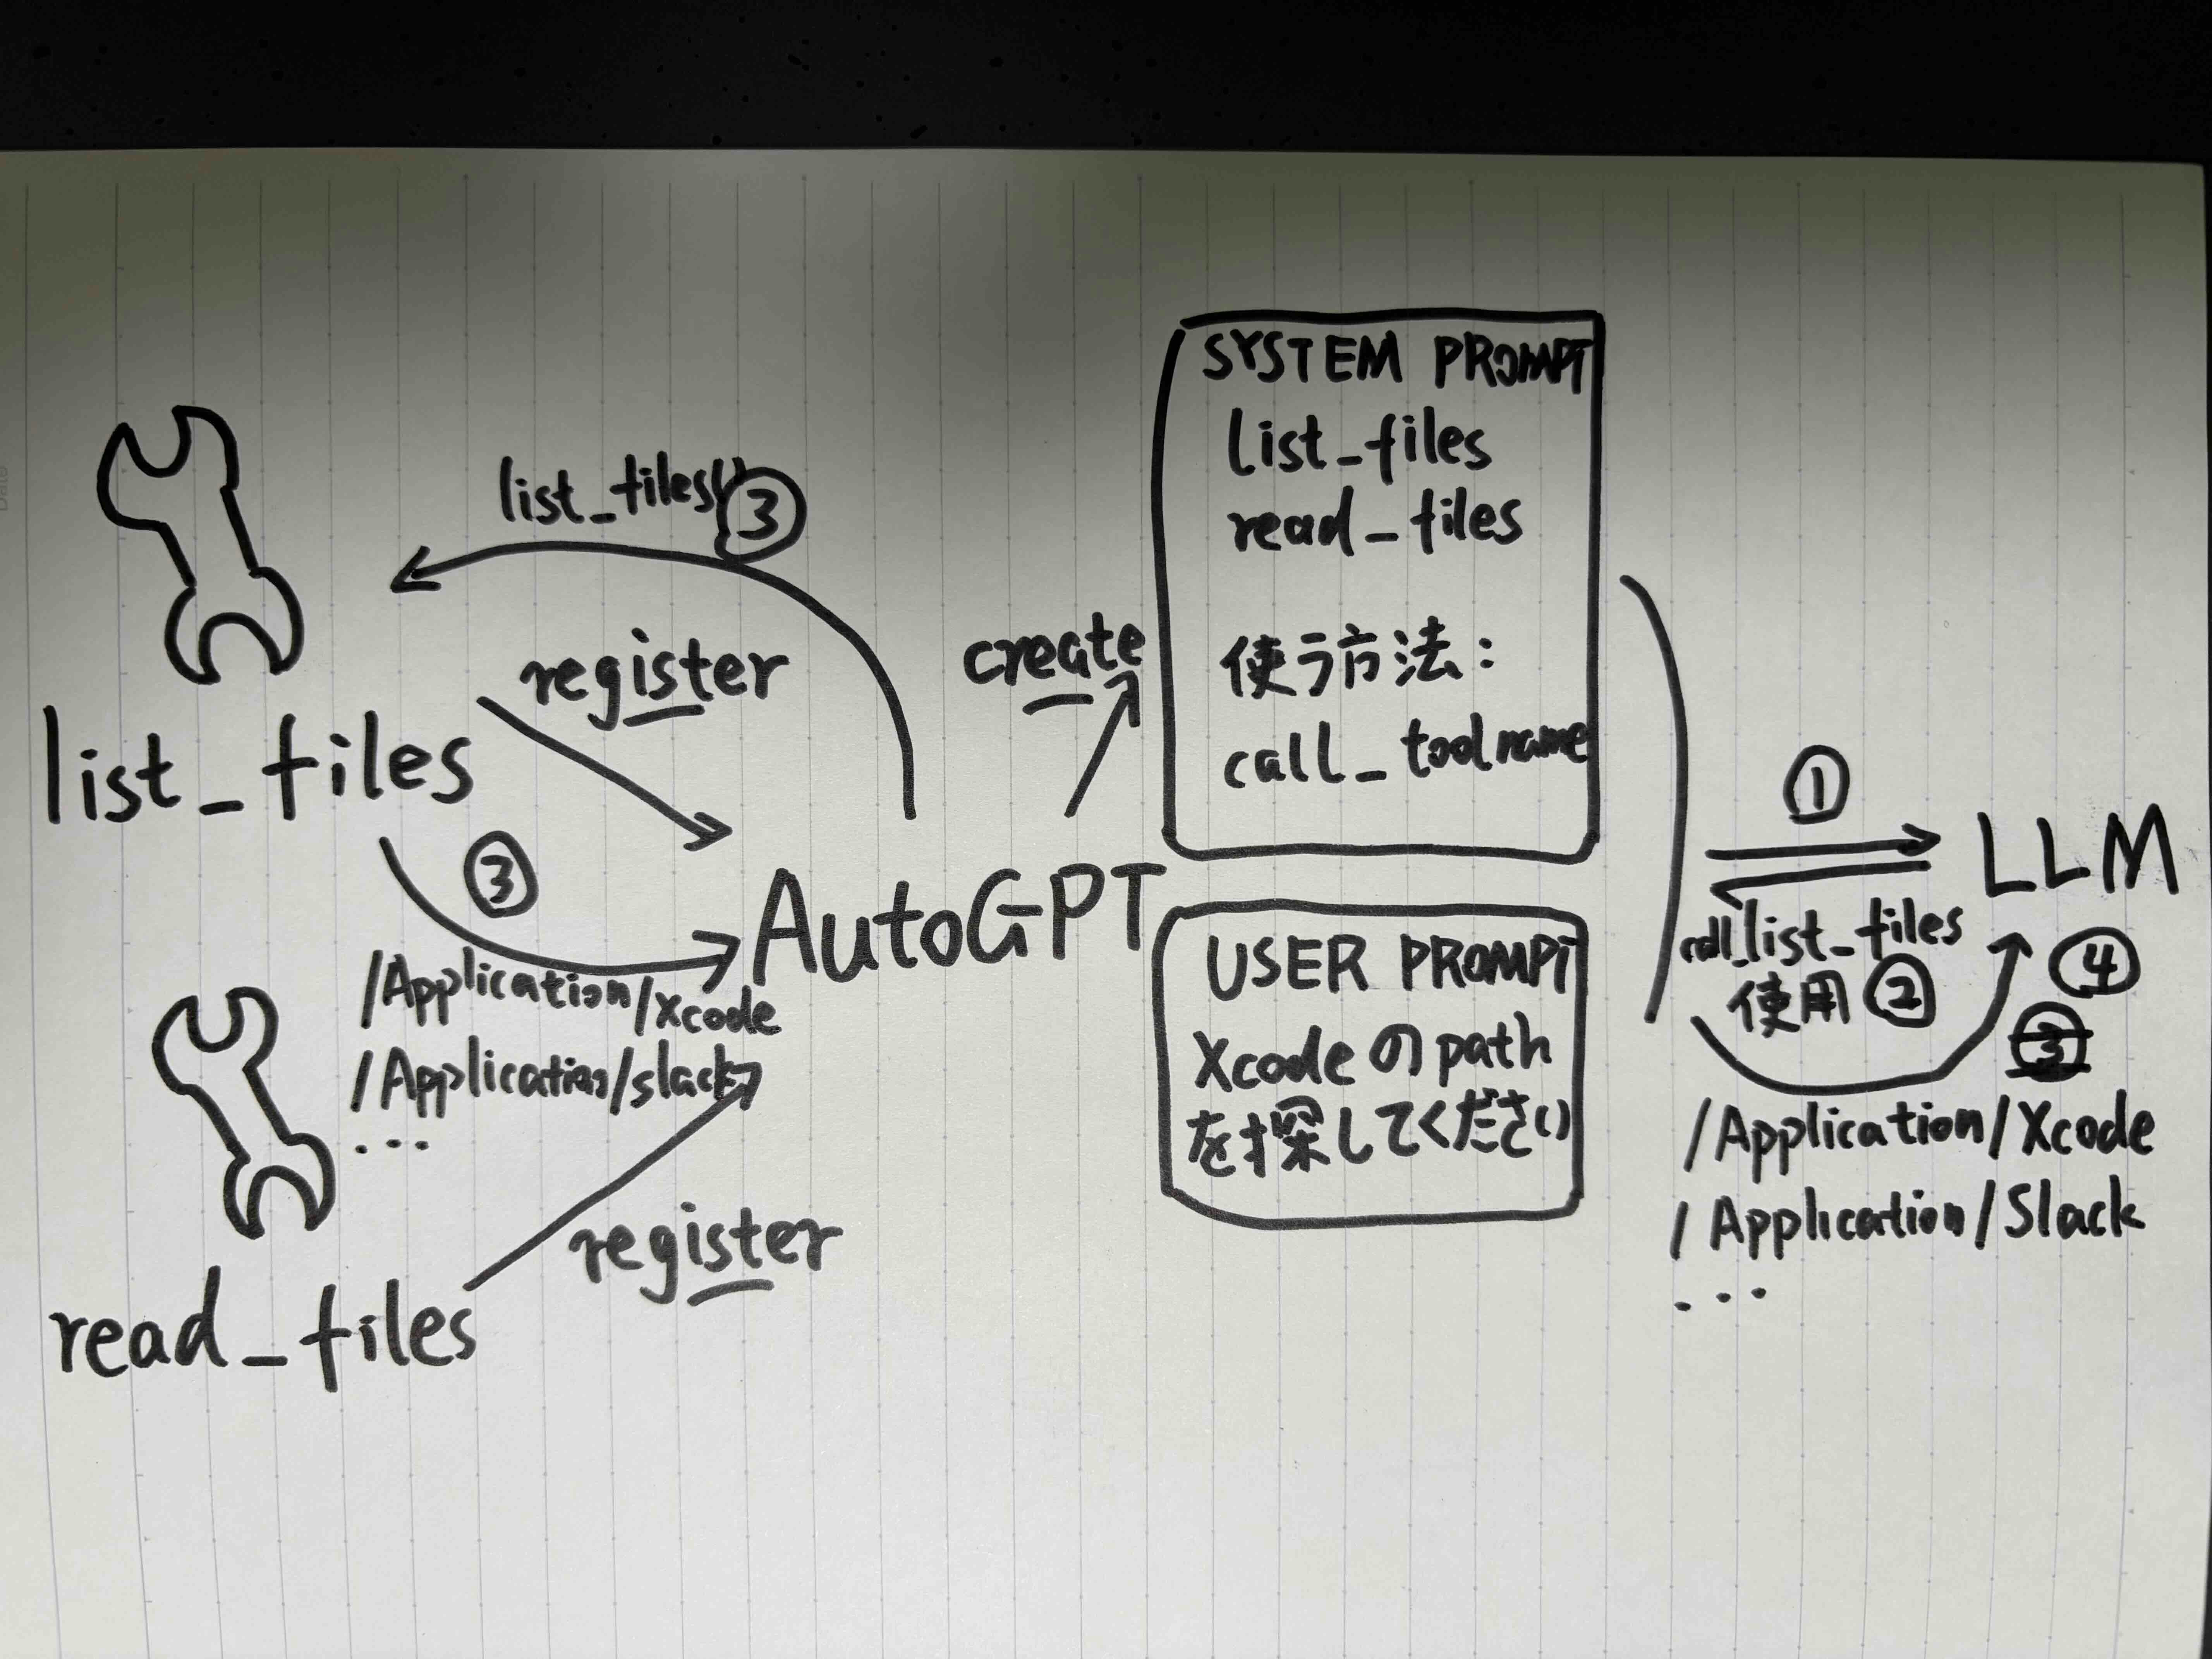 SYSTEM PROMPT
list_files
read_files
使う方法:
call_toolname
list_files()
③
register
create
list_files
③
AutoGPT
/Application/Xcode
/Application/slack
...
register
read_files
USER PROMPT
Xcodeのpath
を探してください
①
LLM
call_list_files
使用②
④
③
/Application/Xcode
/Application/Slack
...
Date